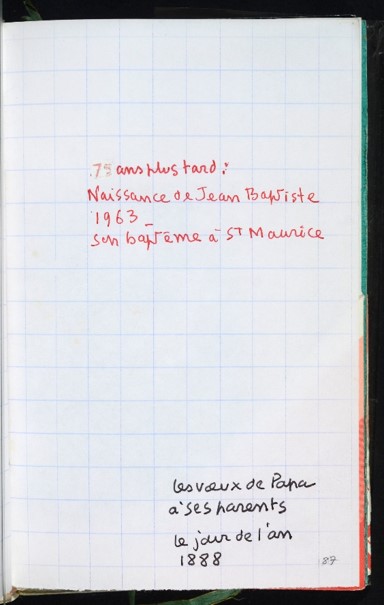 75 ans plus tard :
Naissance de Jean Baptiste
1963 _
son baptême à ST Maurice
les vœux de Papa
à ses parents
le jour de l'an
1888
87